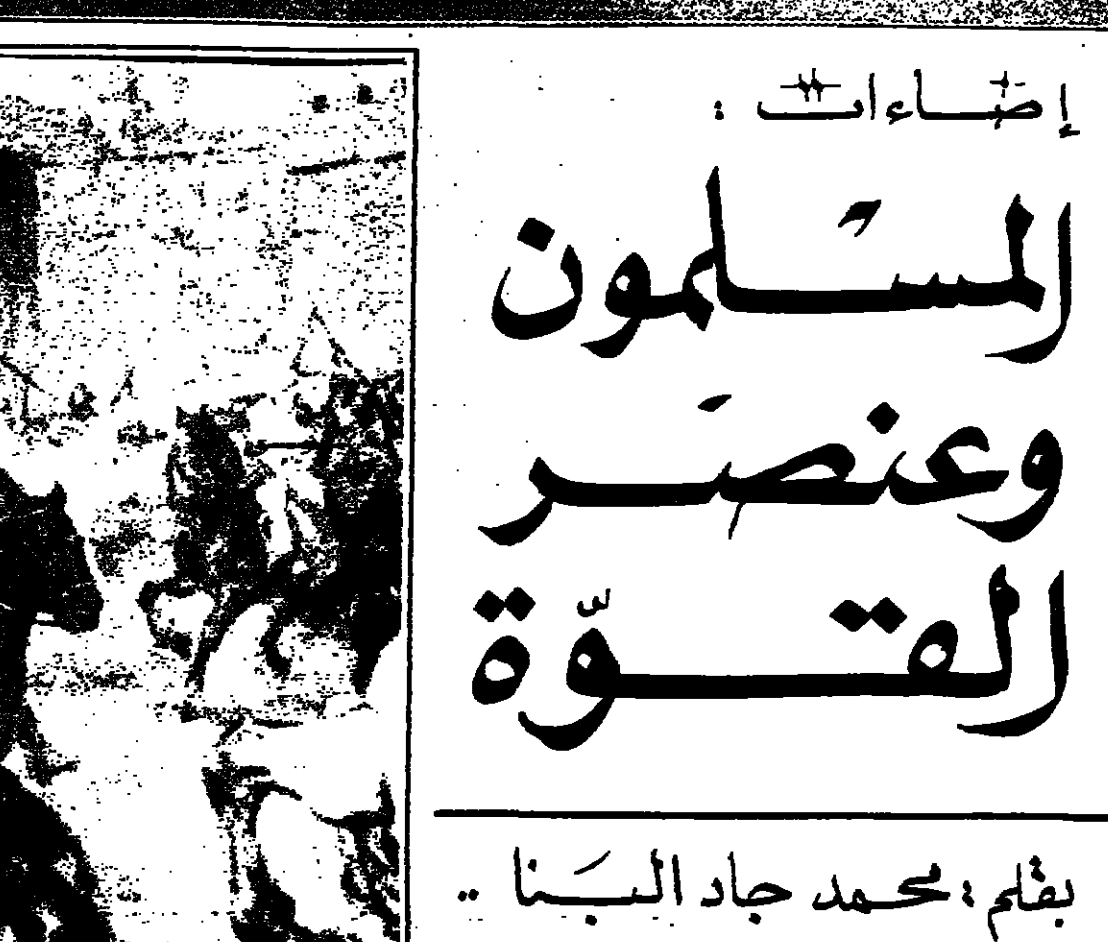 إضاءات :
المسلمون
وعنصر
القوّة
بقلم : محمد جاد البنا ..